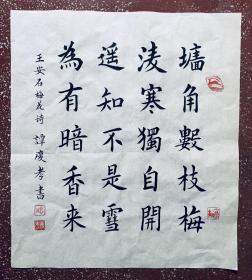 墙角數枝梅
淩寒獨自開
遥知不是雪
為有暗香来
王安石梅花诗 譚慶孝書